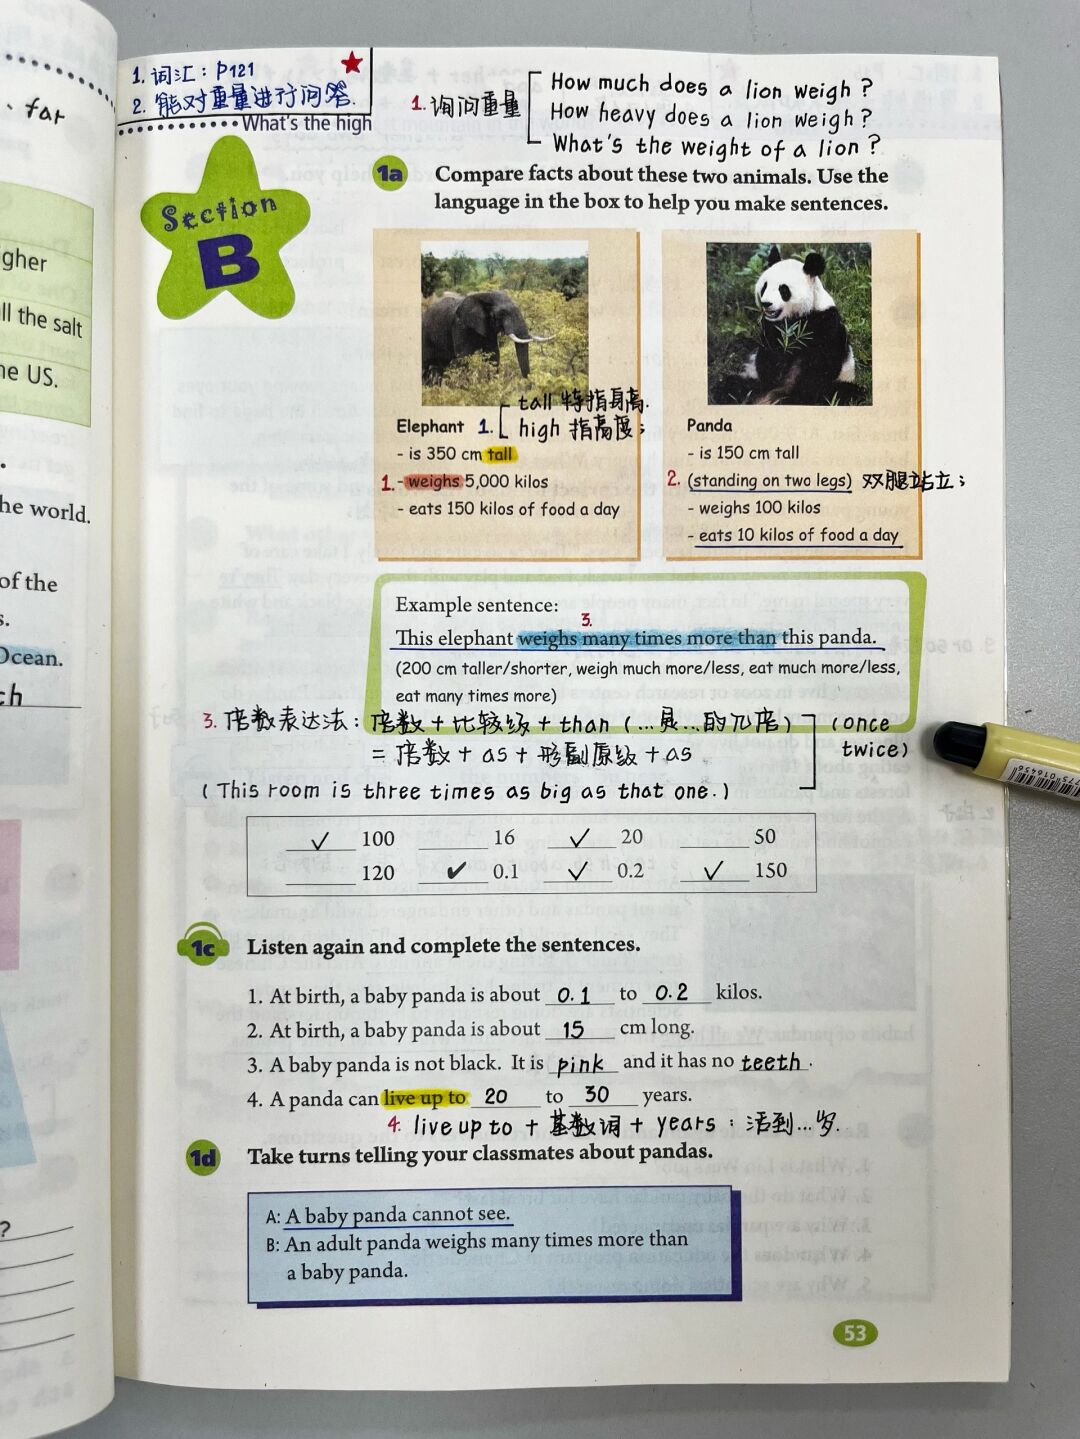 1. 词汇：P121
2. 能对重量进行问答.
What's the high
1. 询问重量
How much does a lion weigh ?
How heavy does a lion weigh ?
What's the weight of a lion ?
Section
B
1a Compare facts about these two animals. Use the
language in the box to help you make sentences.
Elephant 1.
tall 特指身高.
high 指高度；
- is 350 cm tall
1. - weighs 5,000 kilos
- eats 150 kilos of food a day
Panda
- is 150 cm tall
2. (standing on two legs) 双腿站立；
- weighs 100 kilos
- eats 10 kilos of food a day
Example sentence:
3.
This elephant weighs many times more than this panda.
(200 cm taller/shorter, weigh much more/less, eat much more/less,
eat many times more)
3. 倍数表达法：倍数 + 比较级 + than (...是...的几倍)
= 倍数 + as + 形副原级 + as
(once
twice)
(This room is three times as big as that one.)
✓ 100 16 ✓ 20 50
120 ✓ 0.1 ✓ 0.2 ✓ 150
1c Listen again and complete the sentences.
1. At birth, a baby panda is about 0.1 to 0.2 kilos.
2. At birth, a baby panda is about 15 cm long.
3. A baby panda is not black. It is pink and it has no teeth.
4. A panda can live up to 20 to 30 years.
4. live up to + 基数词 + years：活到...岁.
1d Take turns telling your classmates about pandas.
A: A baby panda cannot see.
B: An adult panda weighs many times more than
a baby panda.
53
far
gher
ll the salt
he US.
he world.
of the
s.
Ocean.
ch
?